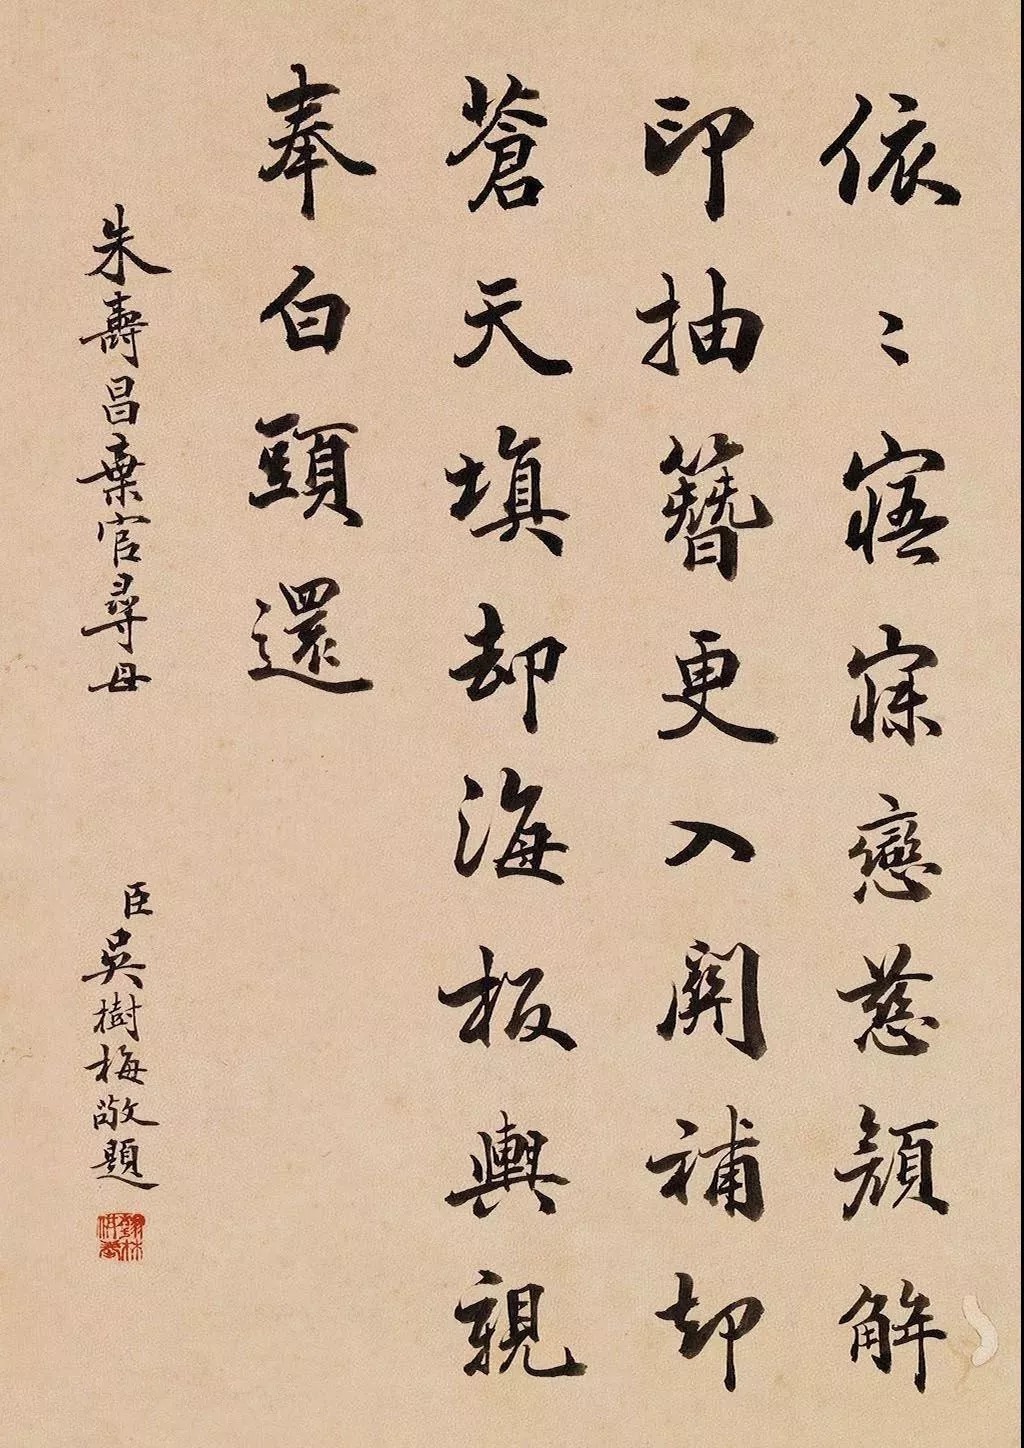 依〻寤寐戀慈顏解
印抽簪更入關補却
蒼天填却海板輿親
奉白頭還
朱壽昌棄官尋母
臣吳樹梅敬題